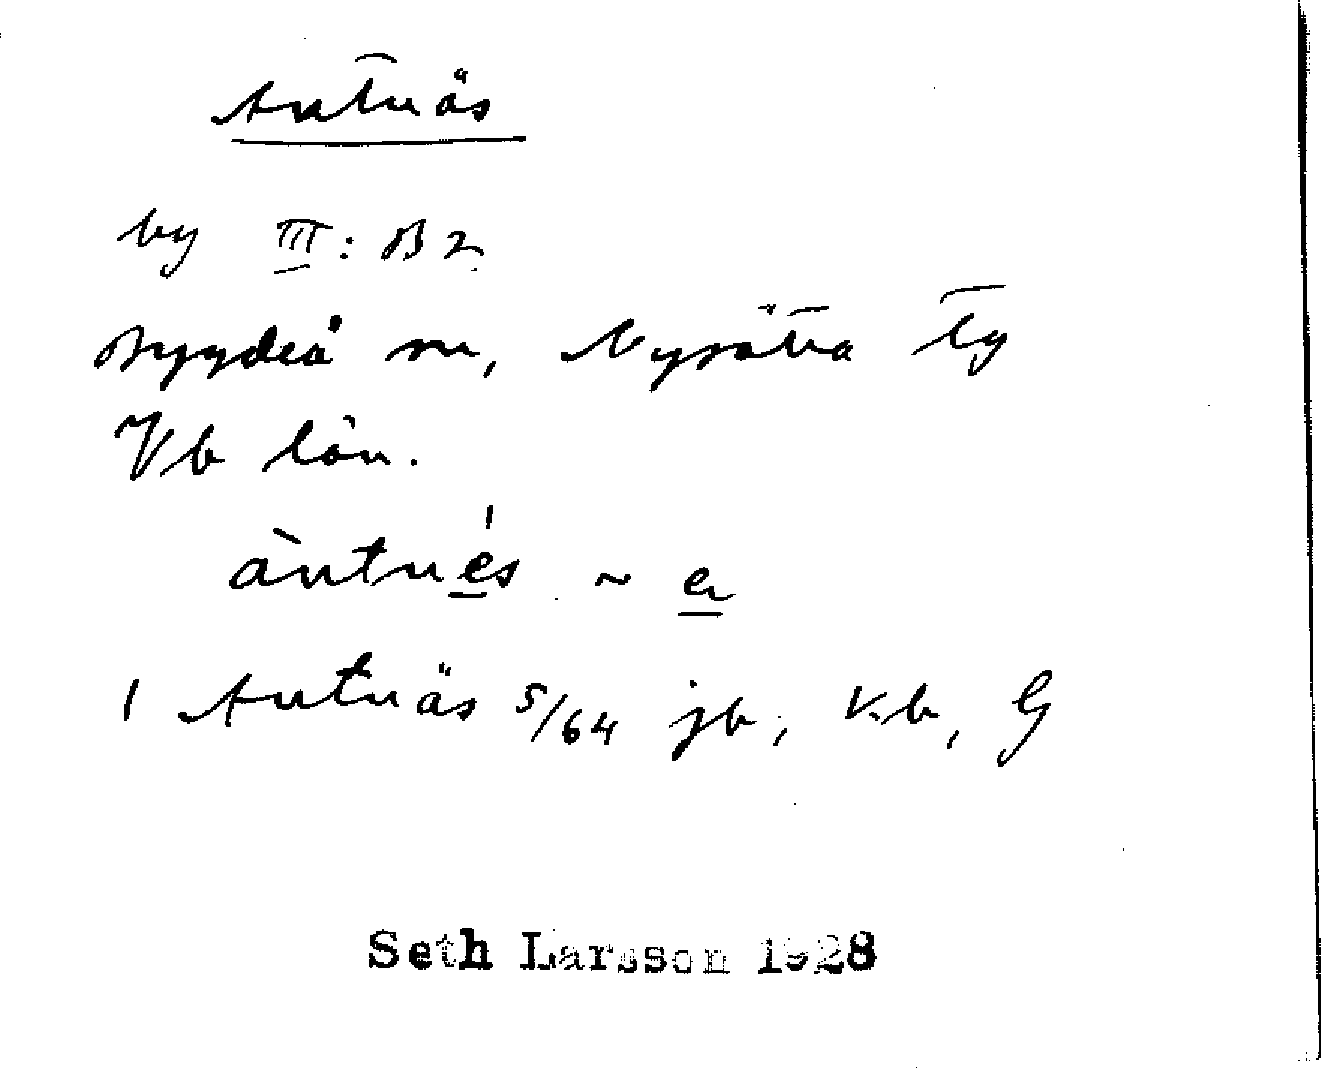 Antnäs
by III: B2
Bygdeå sn, Nysätra tg
Vb län.
àntnés ~ e
1 Antnäs 5/64 jb, K.b, G
Seth Larsson 1928